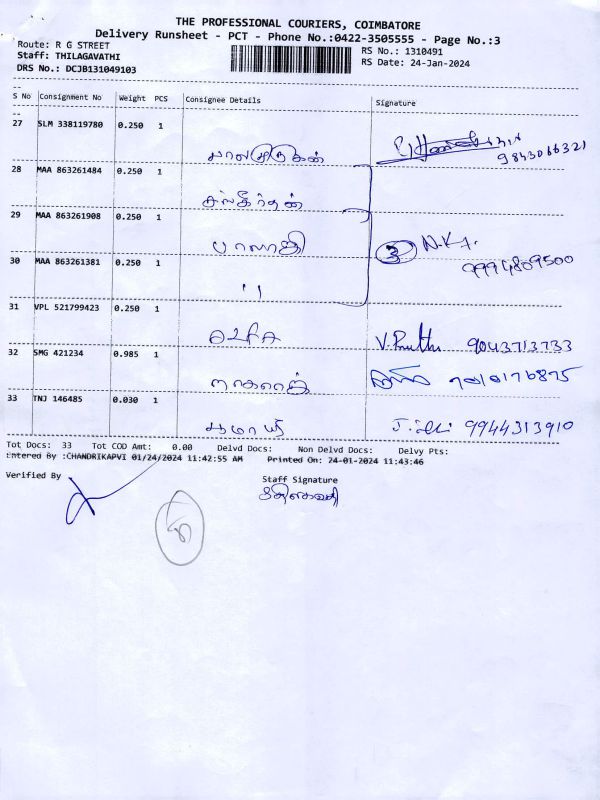 THE PROFESSIONAL COURIERS, COIMBATORE
Delivery Runsheet - PCT - Phone No.:0422-3505555 - Page No.:3
Route: R G STREET
Staff: THILAGAVATHI
DRS No.: DCJB131049103
RS No.: 1310491
RS Date: 24-Jan-2024
S No Consignment No Weight PCS Consignee Details Signature
27 SLM 338119780 0.250 1
பாலமுருகன் 9843066321
28 MAA 863261484 0.250 1
29 MAA 863261908 0.250 1
பாலாஜி ③ N.K.
30 MAA 863261381 0.250 1 9994809500
"
31 VPL 521799423 0.250 1
V. 9043713733
32 SMG 421234 0.985 1
நாகராஜ்
33 TNJ 146485 0.030 1
உமாயி 9944313910
Tot Docs: 33 Tot COD Amt: 0.00 Delvd Docs: Non Delvd Docs: Delvy Pts:
Entered By :CHANDRIKAPVI 01/24/2024 11:42:55 AM Printed On: 24-01-2024 11:43:46
Verified By Staff Signature